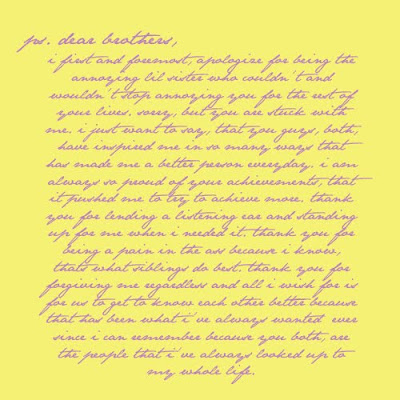 ps. dear brothers,
i first and foremost, apologize for being the
annoying lil sister who couldn't and
wouldn't stop annoying you for the rest of
your lives. sorry, but you are stuck with
me. i just want to say, that you guys, both,
have inspired me in so many ways that
has made me a better person everyday. i am
always so proud of your achievements, that
it pushed me to try to achieve more. thank
you for lending a listening ear and standing
up for me when i needed it. thank you for
being a pain in the ass because i know,
thats what siblings do best. thank you for
forgiving me regardless and all i wish for is
for us to get to know each other better because
that has been what i've always wanted ever
since i can remember because you both, are
the people that i've always looked up to
my whole life.